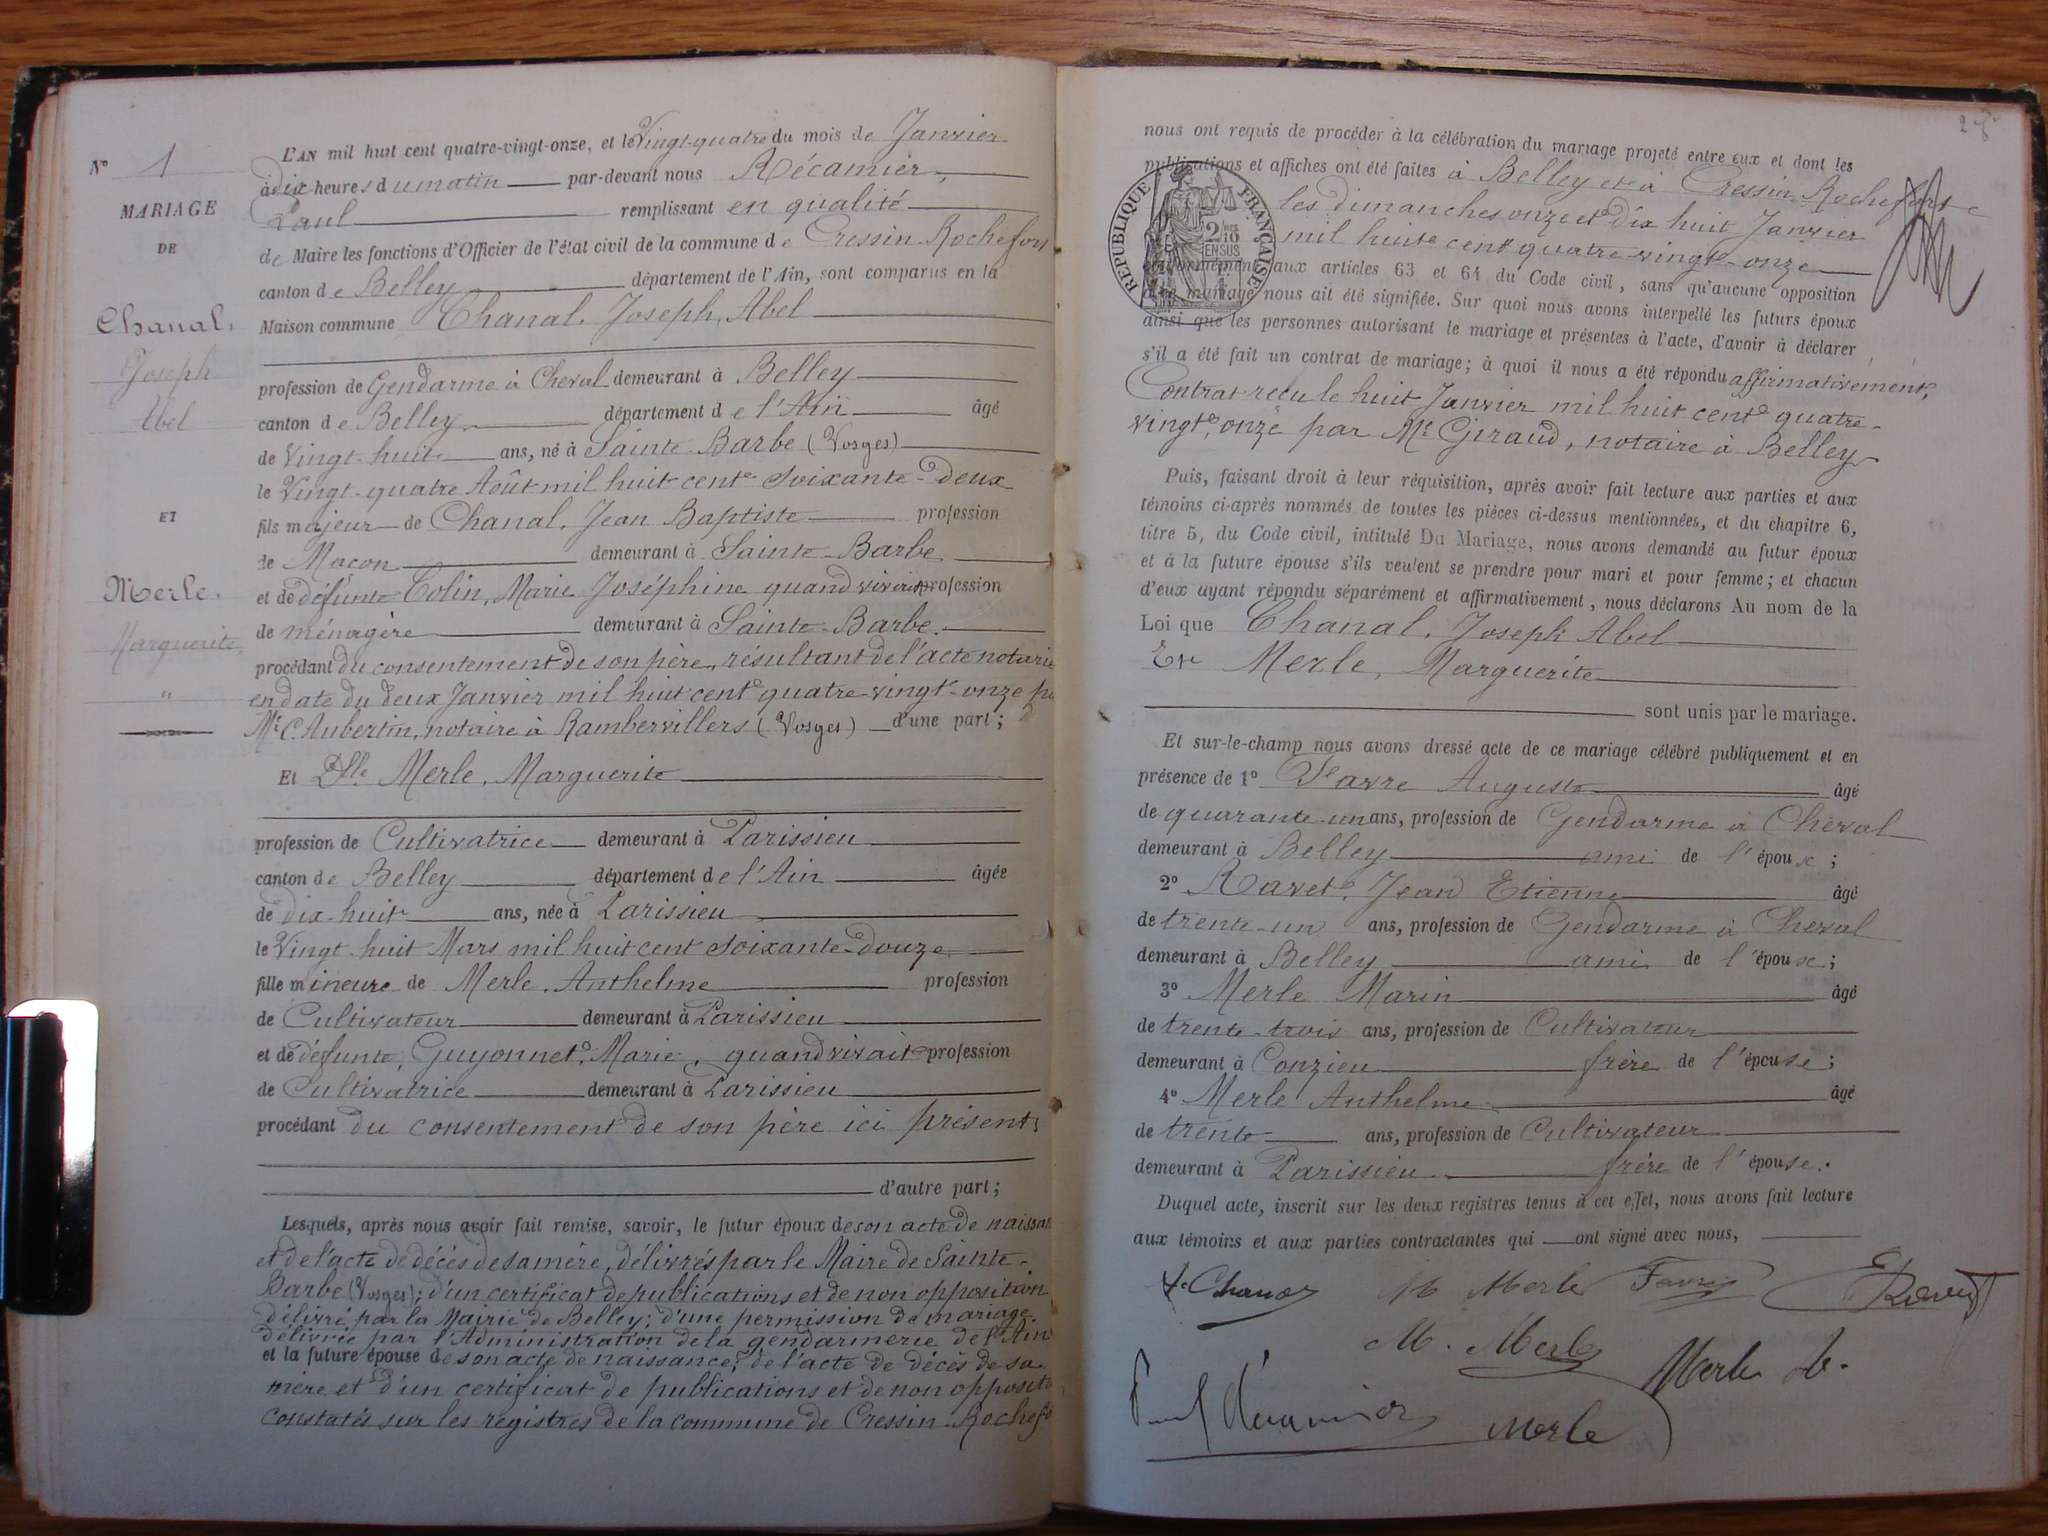 N° 1
MARIAGE
DE
Chanal,
Joseph
Abel
ET
Merle,
Marguerite,
"
L'AN mil huit cent quatre-vingt-onze, et le Vingt-quatre du mois de Janvier
à dix heures du matin par-devant nous Récamier,
Paul remplissant en qualité
de Maire les fonctions d'Officier de l'état civil de la commune de Cressin-Rochefort
canton de Belley département de l'Ain, sont comparus en la
Maison commune Chanal, Joseph, Abel
profession de Gendarme à Cheval demeurant à Belley
canton de Belley département de l'Ain âgé
de Vingt-huit ans, né à Sainte-Barbe (Vosges)
le Vingt-quatre Août mil huit cent soixante-deux
fils majeur de Chanal, Jean Baptiste profession
de Macon demeurant à Sainte-Barbe
et de défunte Colin, Marie Joséphine quand vivait profession
de ménagère demeurant à Sainte-Barbe.
procédant du consentement de son père, résultant de l'acte notarié
en date du deux Janvier mil huit cent quatre-vingt-onze
Me C. Aubertin, notaire à Rambervillers (Vosges) d'une part;
Et Dlle Merle, Marguerite
profession de Cultivatrice demeurant à Parissieu
canton de Belley département de l'Ain âgée
de dix-huit ans, née à Parissieu
le Vingt-huit Mars mil huit cent soixante-douze
fille mineure de Merle, Anthelme profession
de Cultivateur demeurant à Parissieu
et de défunte, Guyonnet, Marie, quand vivait profession
de Cultivatrice demeurant à Parissieu
procédant du consentement de son père ici présent;
d'autre part;
Lesquels, après nous avoir fait remise, savoir, le futur époux de son acte de naissan
et de l'acte de décès de sa mère, délivrés par le Maire de Sainte-
Barbe (Vosges); d'un certificat de publications et de non opposition
délivré par la Mairie de Belley; d'une permission de mariage
délivrée par l'Administration de la gendarmerie de l'Ain
et la future épouse de son acte de naissance, de l'acte de décès de sa
mère et d'un certificat de publications et de non opposit
constatés sur les registres de la commune de Cressin-Rochefo
nous ont requis de procéder à la célébration du mariage projeté entre eux et dont les
publications et affiches ont été faites à Belley et à Cressin Rochefort
les dimanches onze et dix huit Janvier
mil huit cent quatre vingt-onze
conformément aux articles 63 et 64 du Code civil, sans qu'aucune opposition
audit mariage nous ait été signifiée. Sur quoi nous avons interpellé les futurs époux
ainsi que les personnes autorisant le mariage et présentes à l'acte, d'avoir à déclarer
s'il a été fait un contrat de mariage; à quoi il nous a été répondu affirmativement,
Contrat reçu le huit Janvier mil huit cent quatre-
vingt, onze par Me Giraud, notaire à Belley
RÉPUBLIQUE FRANÇAISE
Puis, faisant droit à leur réquisition, après avoir fait lecture aux parties et aux
témoins ci-après nommés de toutes les pièces ci-dessus mentionnées, et du chapitre 6,
titre 5, du Code civil, intitulé Du Mariage, nous avons demandé au futur époux
et à la future épouse s'ils veulent se prendre pour mari et pour femme; et chacun
d'eux ayant répondu séparément et affirmativement, nous déclarons Au nom de la
Loi que Chanal, Joseph Abel
Et Merle, Marguerite
sont unis par le mariage.
Et sur-le-champ nous avons dressé acte de ce mariage célébré publiquement et en
présence de 1° Favre Auguste âgé
de quarante-un ans, profession de Gendarme à Cheval
demeurant à Belley ami de l'époux;
2° Ravet, Jean Etienne âgé
de trente-un ans, profession de Gendarme à Cheval
demeurant à Belley ami de l'épouse;
3° Merle Marin âgé
de trente-trois ans, profession de Cultivateur
demeurant à Conzieu frère de l'épouse;
4° Merle Anthelme âgé
de trente ans, profession de Cultivateur
demeurant à Parissieu frère de l'épouse.
Duquel acte, inscrit sur les deux registres tenus à cet effet, nous avons fait lecture
aux témoins et aux parties contractantes qui ont signé avec nous,
Chanal M Merle Favre Ravet
M. Merle Merle A.
Paul Récamier Merle